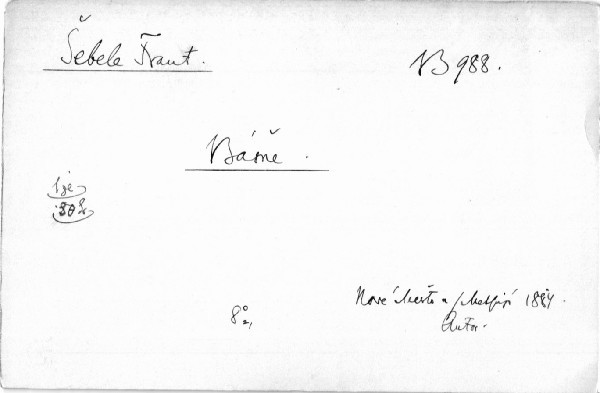 Šebele Frant.
VB 988.
Básně.
8°
Nové Město n/Metují 1884.
Autor.